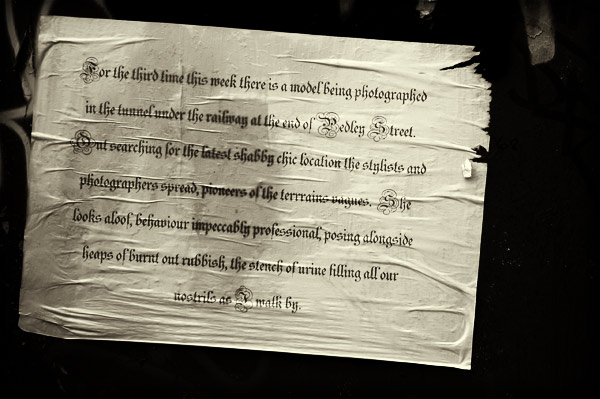 For the third time this week there is a model being photographed
in the tunnel under the railway at the end of Pedley Street.
Out searching for the latest shabby chic location the stylists and
photographers spread, pioneers of the terrrains vagues. She
looks aloof, behaviour impeccably professional, posing alongside
heaps of burnt out rubbish, the stench of urine filling all our
nostrils as I walk by.